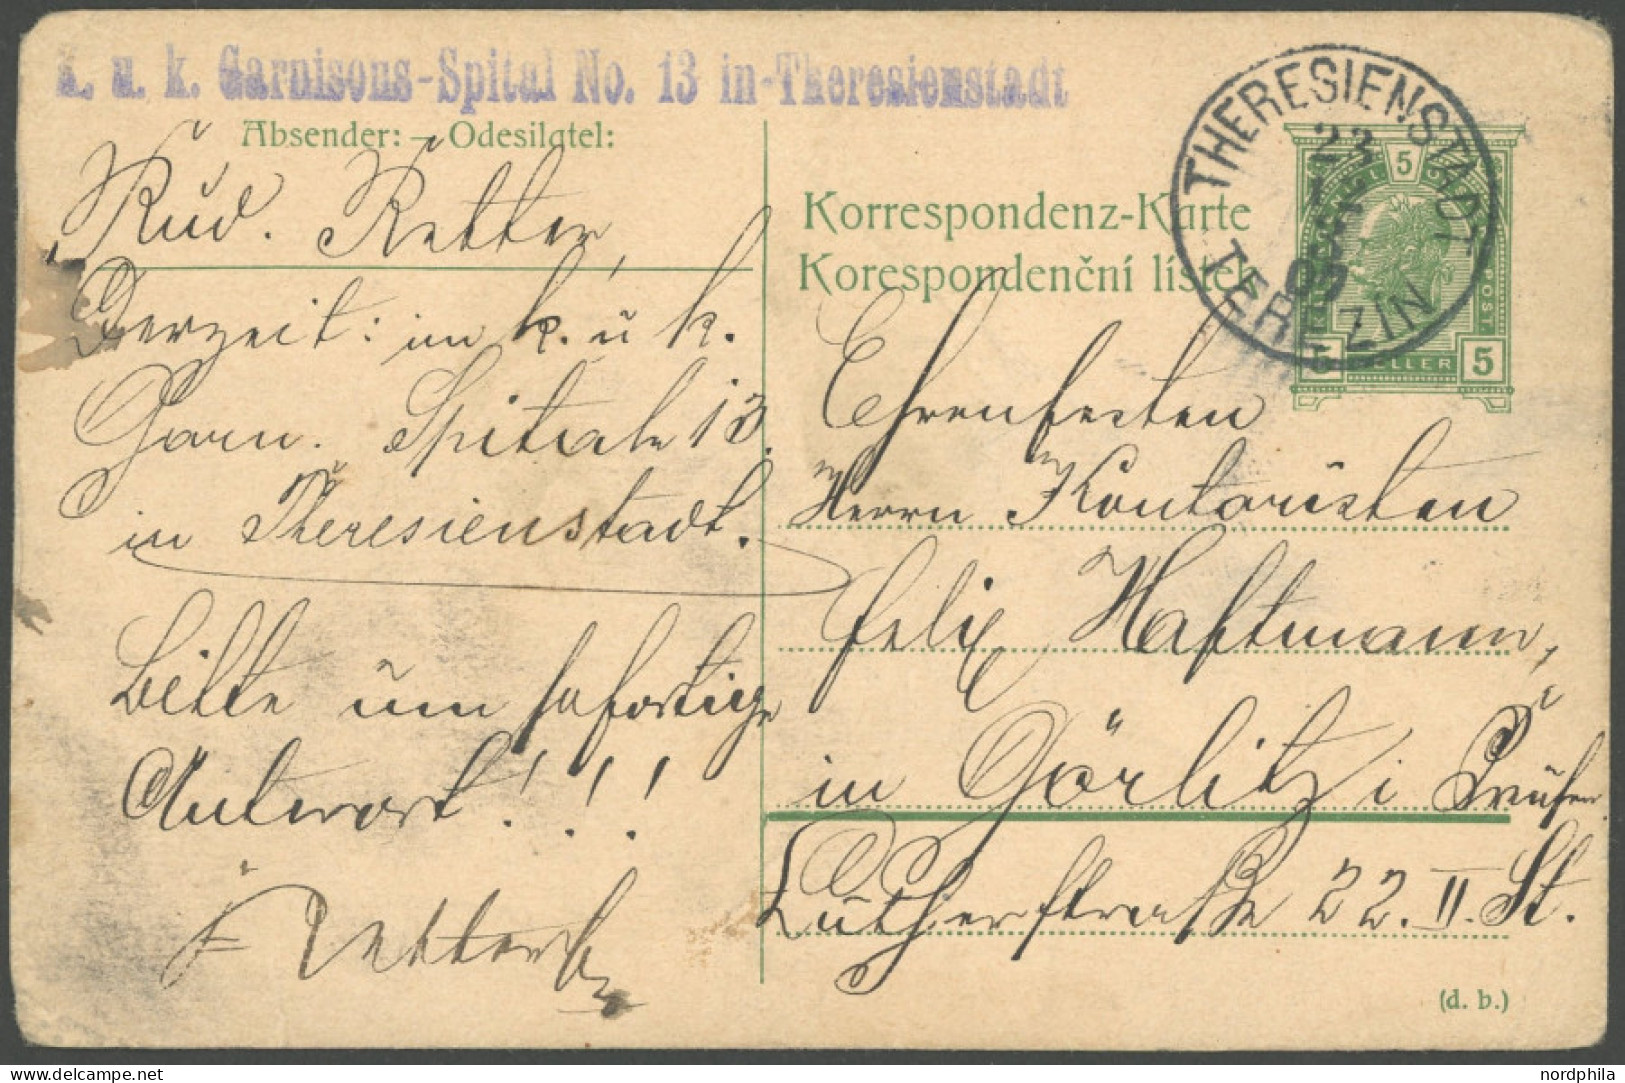 k. u. k. Garnisons-Spital No. 13 in Theresienstadt
Absender: – Odesílatel:
Rud. Retter,
Derzeit: im k. u k.
Garn. Spitale 13.
in Theresienstadt.
Bitte um sofortige
Antwort!!!
Retter
THERESIENSTADT
23
09
TEREZÍN
5
5 HELLER 5
POST
Korrespondenz-Karte
Korespondenční lístek
Ehrenfesten
Herrn Kontoristen
Felix Haftmann,
in Görlitz i Preußen
Lutherstraße 22. II. St.
(d. b.)
nordphila
delcampe.net